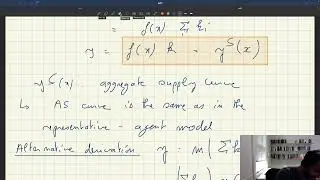 = f(x) Σ kᵢ
y = f(x) k = yˢ(x)
yˢ(x) : aggregate supply curve
↳ AS curve is the same as in the
representative-agent model
Alternative derivation y = m( Σ k